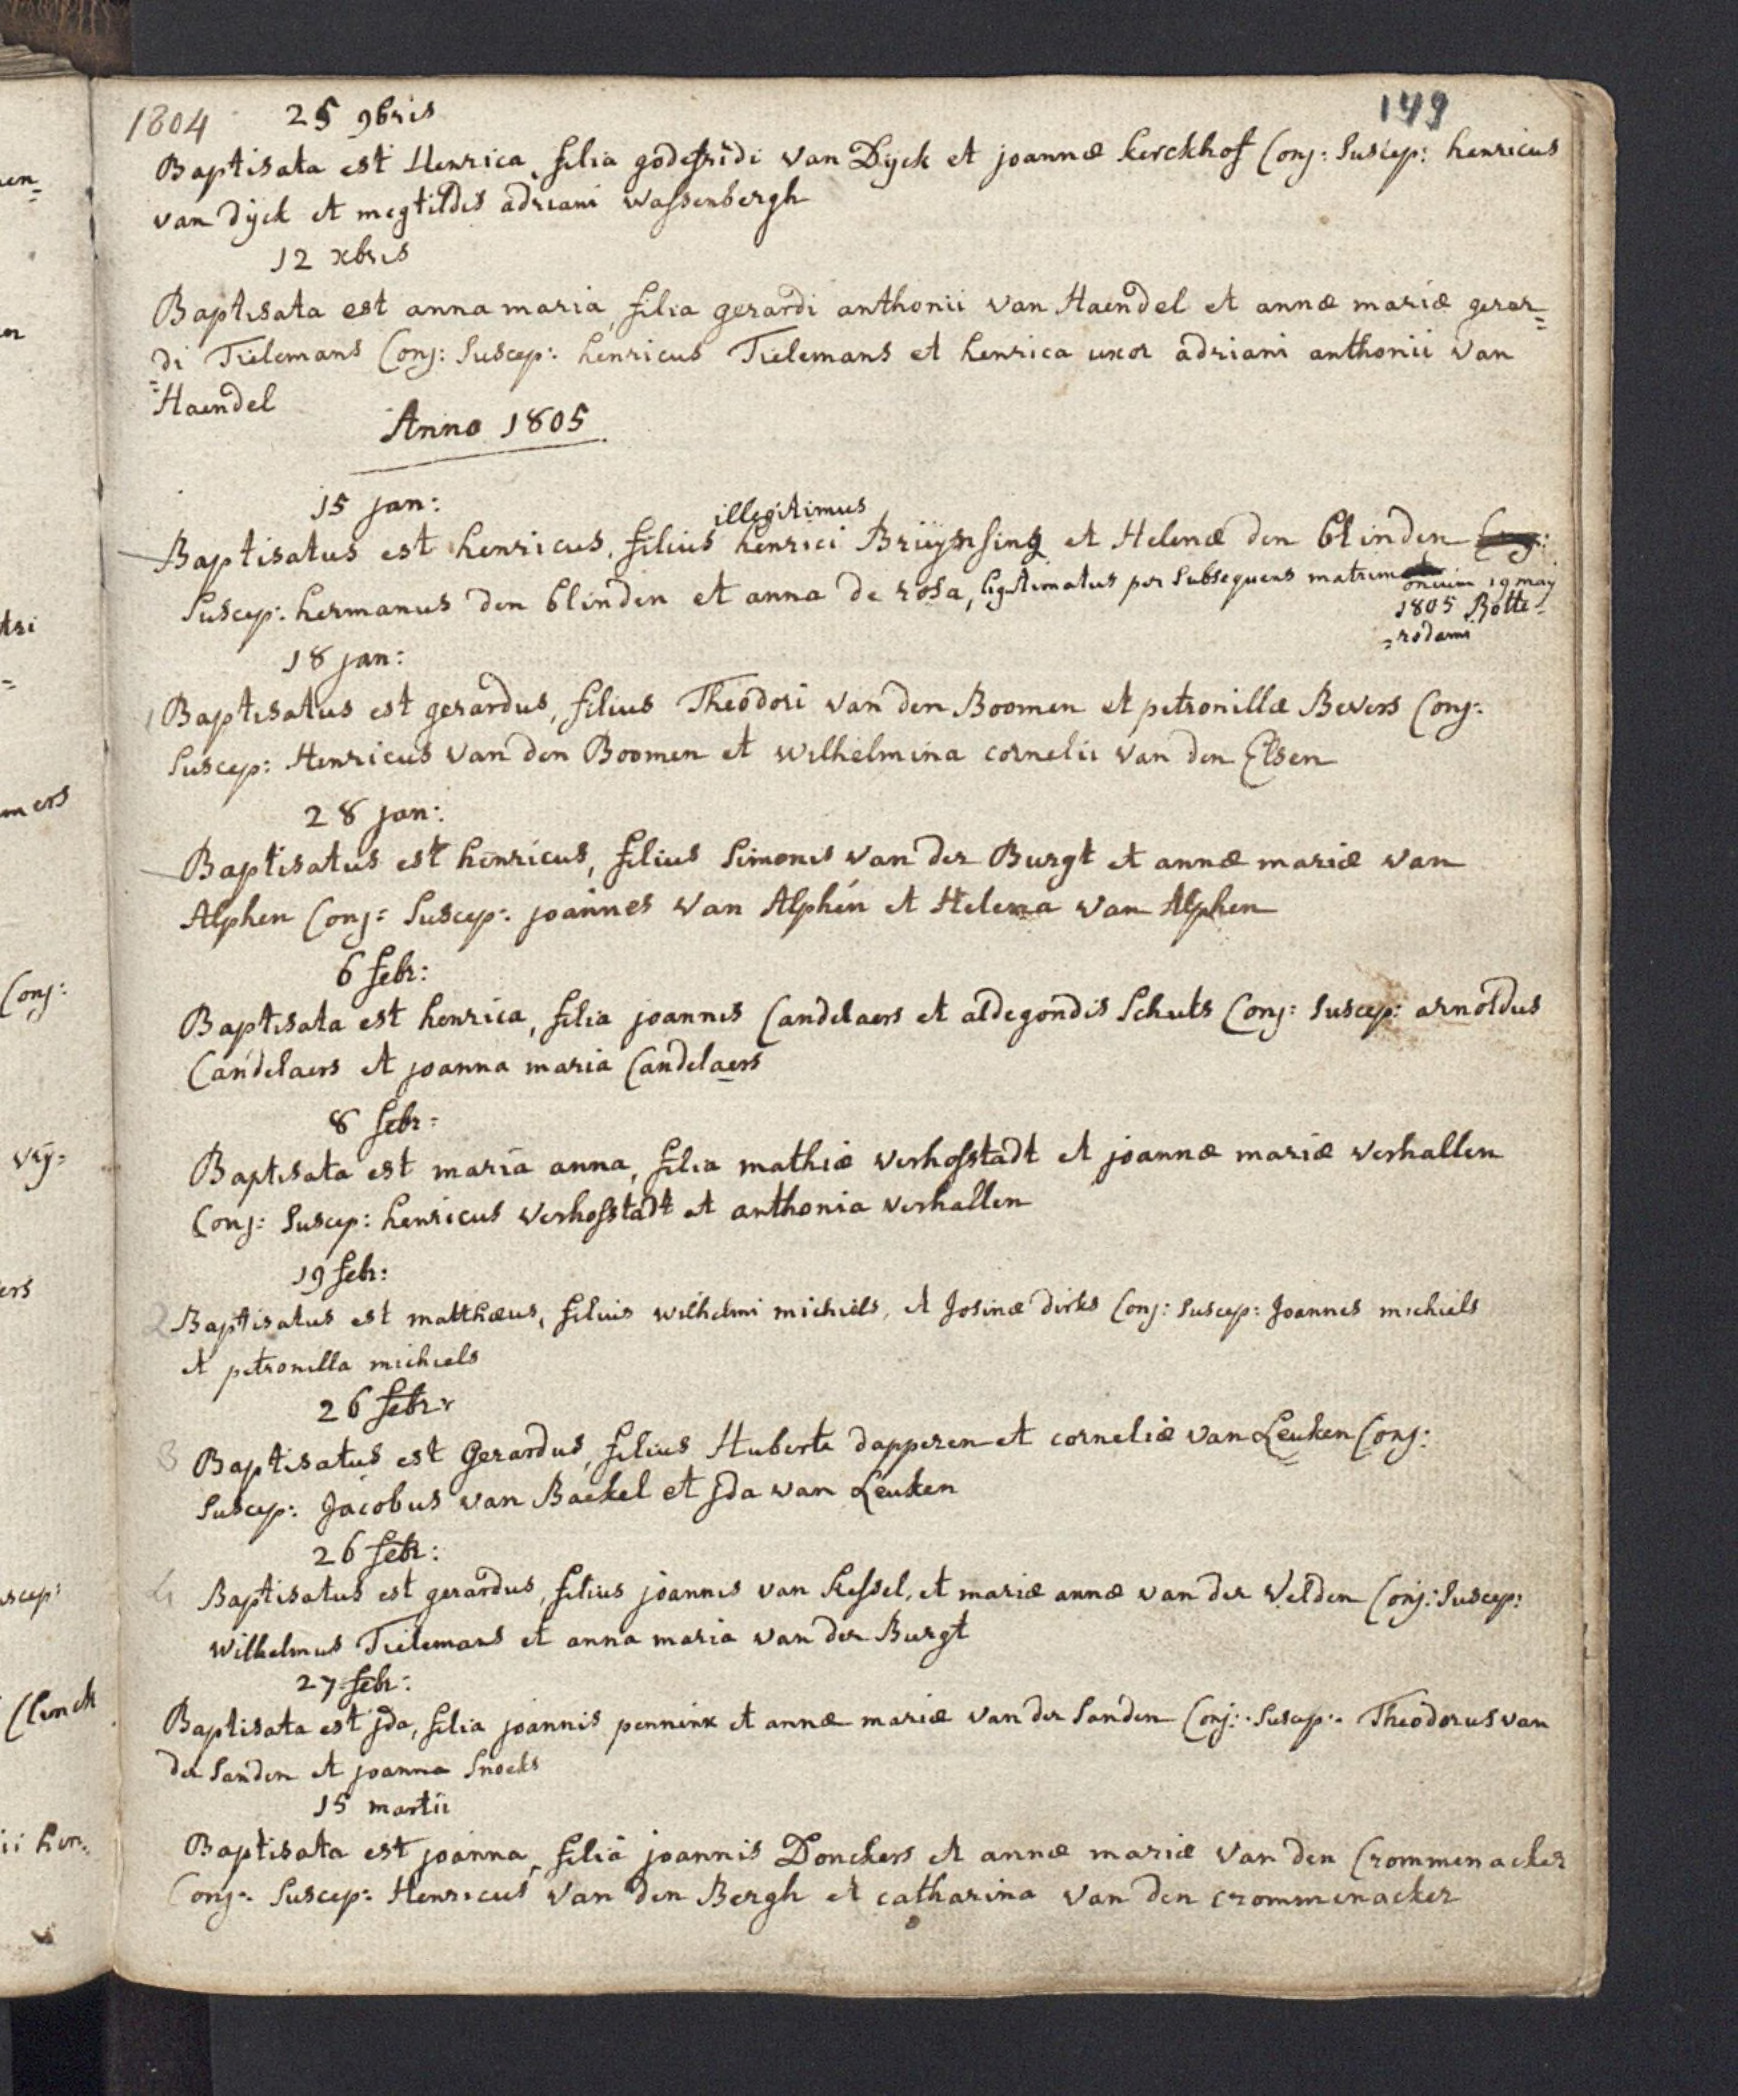 1804 25 9bris 149
Baptisata est Henrica, filia godefridi van Dijck et joannæ kerckhof Conj: Suscep: henricus
van dijck et megtildis adriani wassenbergh
12 xbris
Baptisata est anna maria, filia gerardi anthonii van Haendel et annæ mariæ gerar=
=di Tielemans Conj: Suscep: henricus Tielemans et henrica uxor adriani anthonii van
Haendel
Anno 1805
15 jan:
illegitimus
Baptisatus est henricus, filius henrici Bruijnsing et Helenæ den blinden Conj:
Suscep: hermanus den blinden et anna de rosa, legitimatus per subsequens matrim onium 19 may
1805 Rotte=
=rodami
18 jan:
1 Baptisatus est gerardus, filius Theodori van den Boomen et petronillæ Bevers Conj:
Suscep: Henricus van den Boomen et wilhelmina cornelii van den Elsen
28 jan:
Baptisatus est henricus, filius Simonis van der Burgt et annæ mariæ van
Alphen Conj: Suscep: joannes van Alphen et Helena van Alphen
6 febr:
Baptisata est henrica, filia joannis Candelaers et aldegondis Schuts Conj: Suscep: arnoldus
Candelaers et joanna maria Candelaers
8 febr:
Baptisata est maria anna, filia mathiæ verhofstadt et joannæ mariæ verhallen
Conj: Suscep: henricus verhofstadt et anthonia verhallen
19 febr:
2 Baptisatus est matthæus, filius wilhelmi michiels, et Josinæ dirks Conj: Suscep: Joannes michiels
et petronilla michiels
26 febr:
3 Baptisatus est Gerardus, filius Huberti dapperen et corneliæ van Leuken Conj:
Suscep: Jacobus van Backel et jda van Leuken
26 febr:
4 Baptisatus est gerardus, filius joannis van kessel, et mariæ annæ van der Velden Conj: Suscep:
wilhelmus Tielemans et anna maria van der Burgt
27 febr:
Baptisata est jda, filia joannis pennink et annæ mariæ van der Sanden Conj: Suscep: Theodorus van
der Sanden et joanna Snoeks
15 martii
Baptisata est joanna, filia joannis Donckers et annæ mariæ van den Crommenacker
Conj: Suscep: Henricus van den Bergh et catharina van den crommenacker